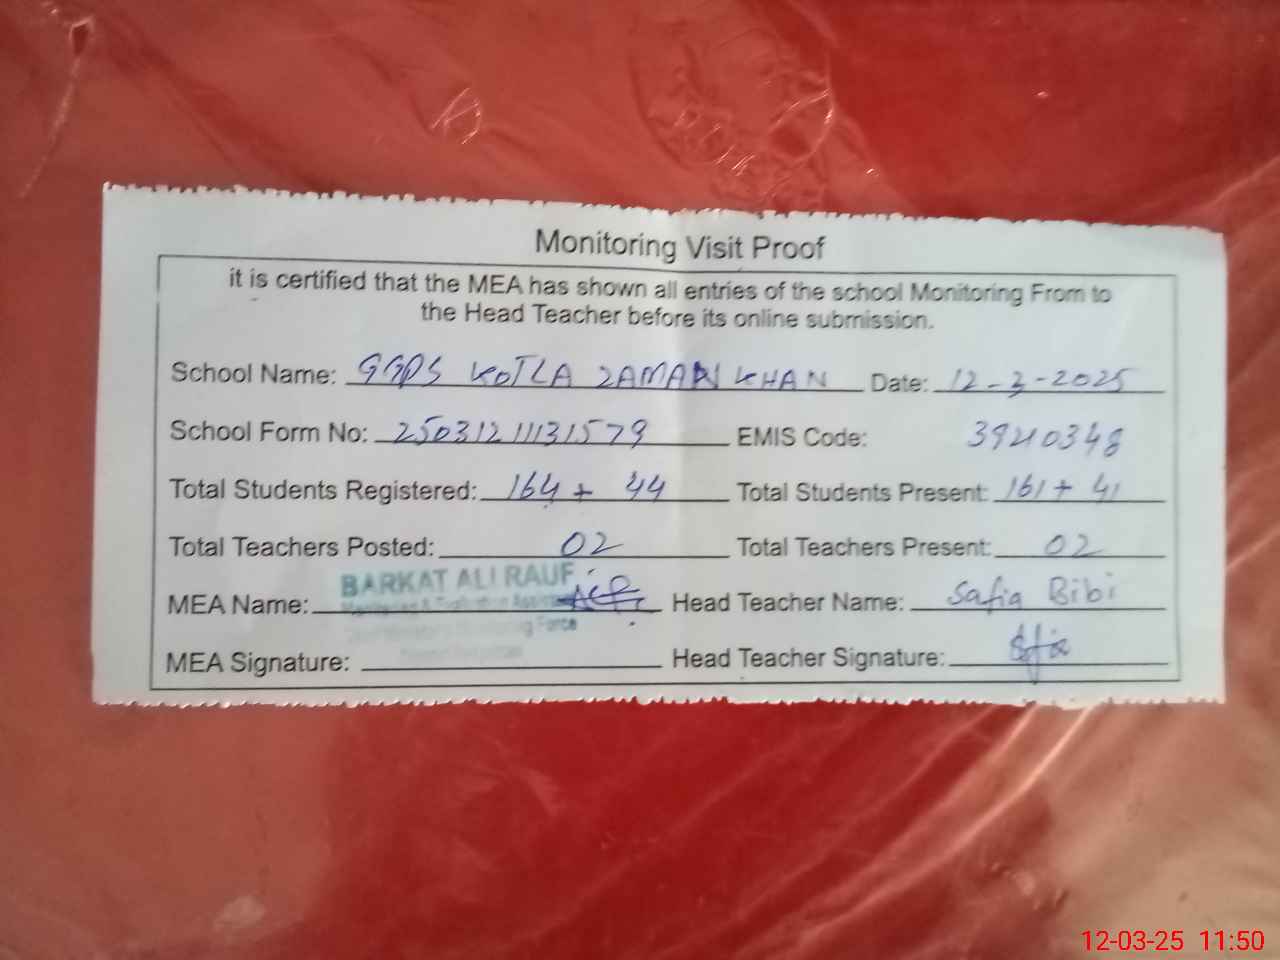 Monitoring Visit Proof
it is certified that the MEA has shown all entries of the school Monitoring From to
the Head Teacher before its online submission.
School Name: GGPS KOTLA ZAMAN KHAN Date: 12-3-2025
School Form No: 25031211131579 EMIS Code: 39210348
Total Students Registered: 164 + 44 Total Students Present: 161 + 41
Total Teachers Posted: 02 Total Teachers Present: 02
BARKAT ALI RAUF
MEA Name: Monitoring & Evaluation Head Teacher Name: Safia Bibi
Monitoring Force
MEA Signature: Head Teacher Signature: Safia
12-03-25 11:50